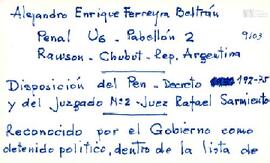 Alejandro Enrique Ferreyra Beltrán
Penal U6 - Pabellón 2
9103
Rawson - Chubut - Rep. Argentina
Disposición del Pen - Decreto 192-75
y del Juzgado Nº2 - Juez Rafael Sarmiento
Reconocido por el Gobierno como
detenido político, dentro de la lista de